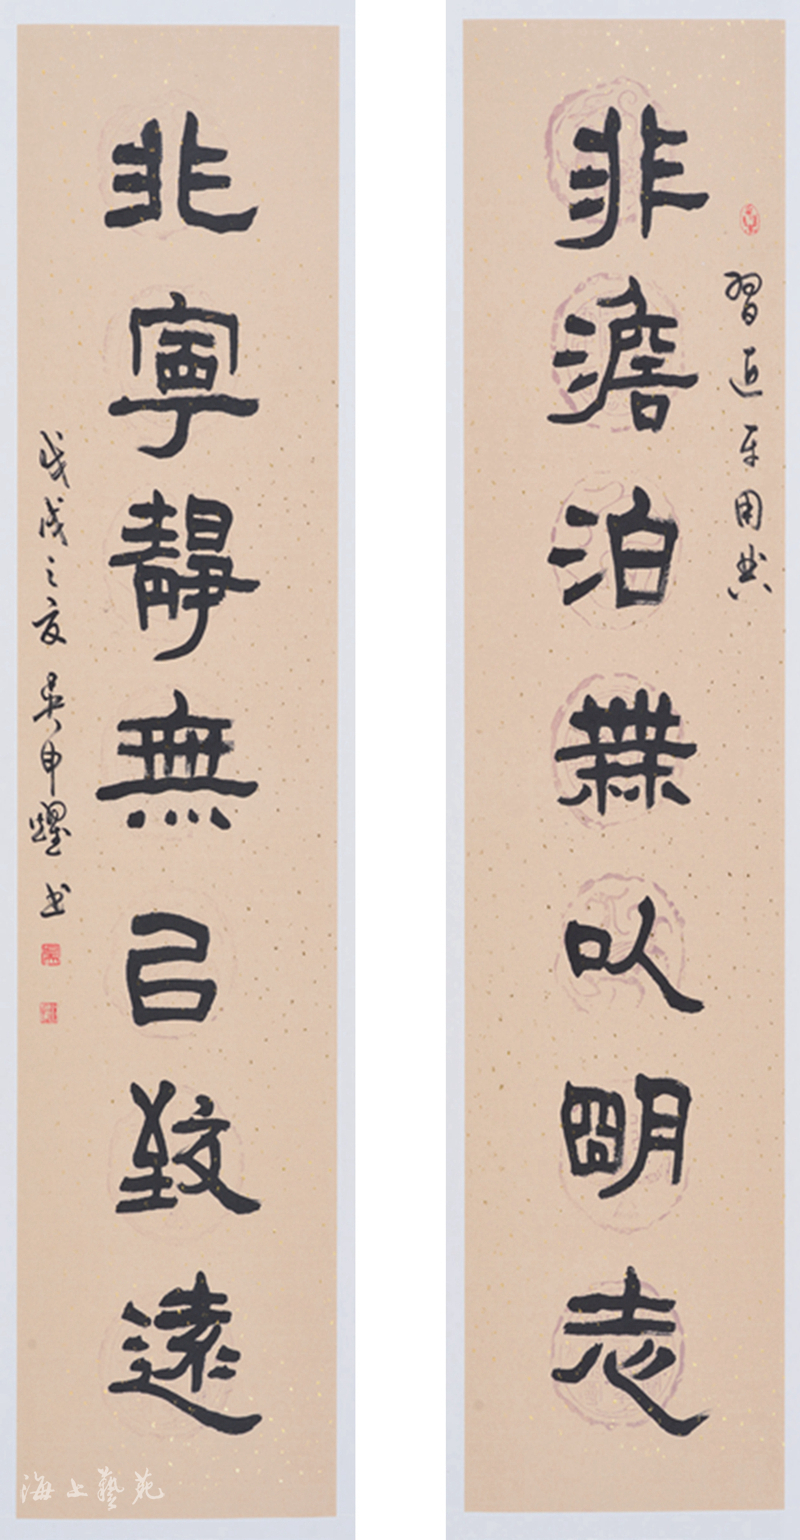 習近平用典
非澹泊無以明志
非寧靜無㠯致遠
戊戌之夏吳申耀书
海上藝苑